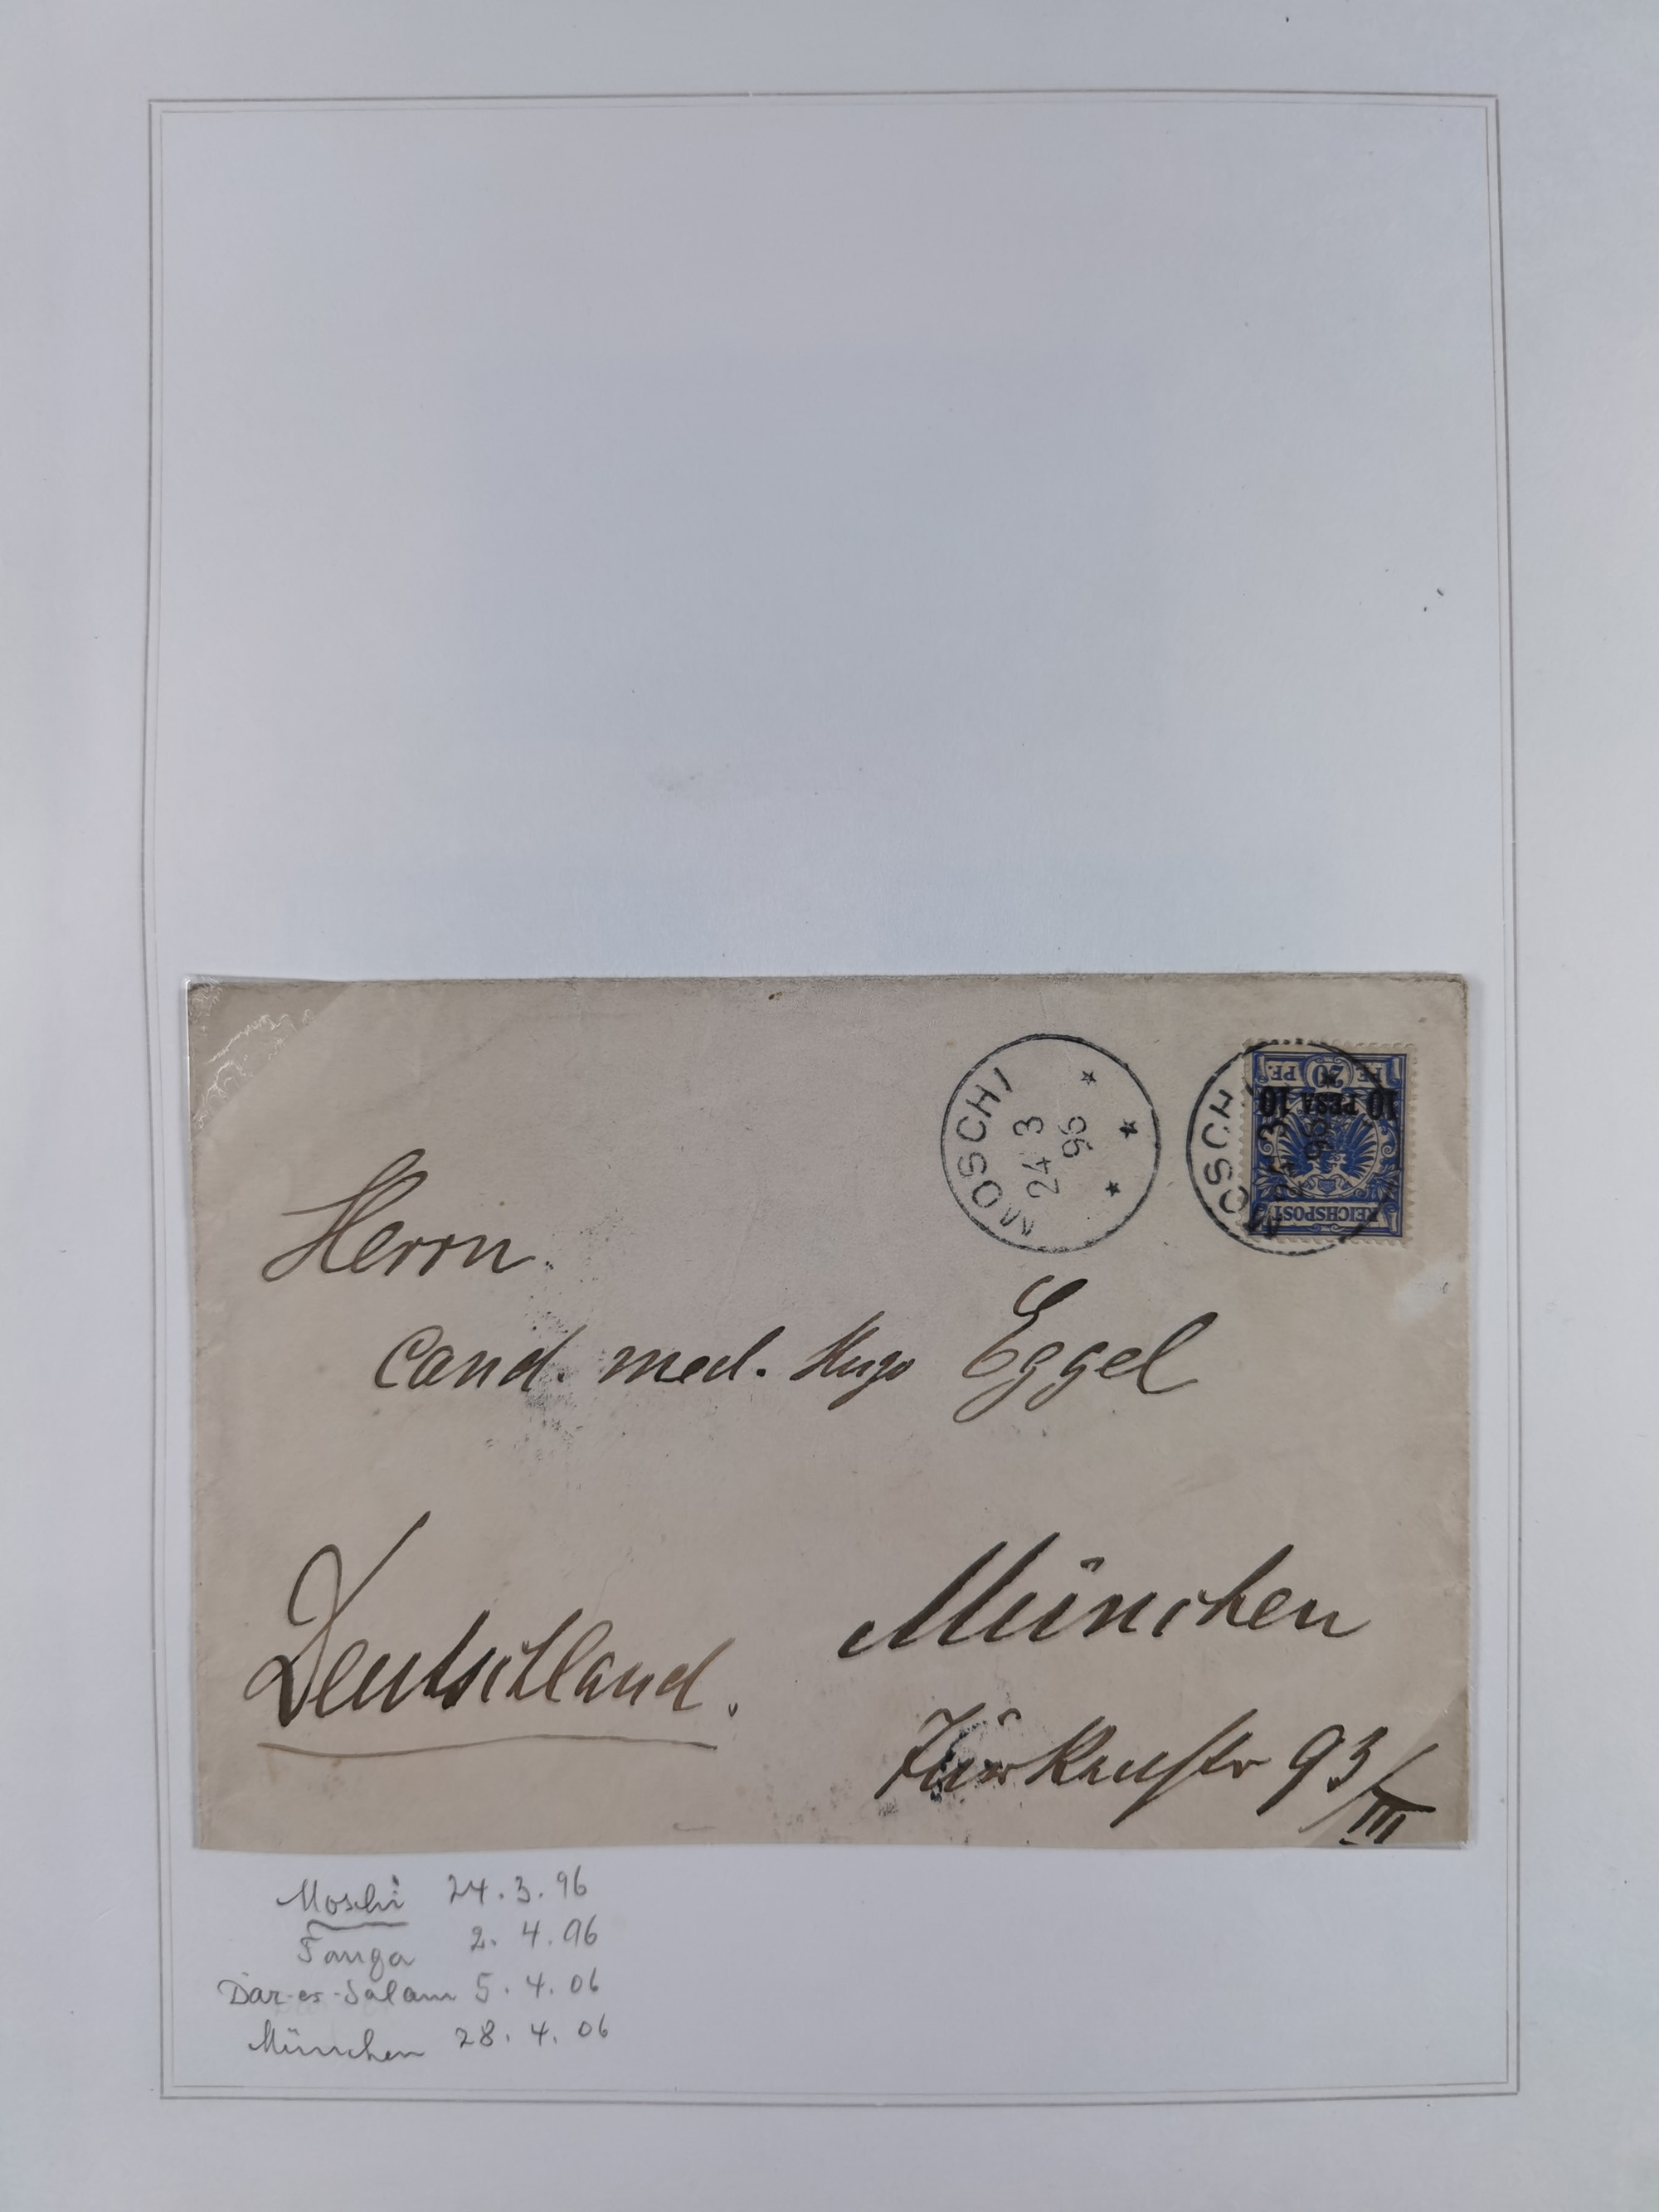 MOSCHI
24 3
96
MOSCHI
24 3
96
20 PF
10 PESA 10
REICHSPOST
Herrn.
cand. med. Hugo Eggel
München
Deutschland.
Türkenstr 93/III
Moschi 24.3.96
Tanga 2.4.96
Dar-es-Salam 5.4.06
München 28.4.06